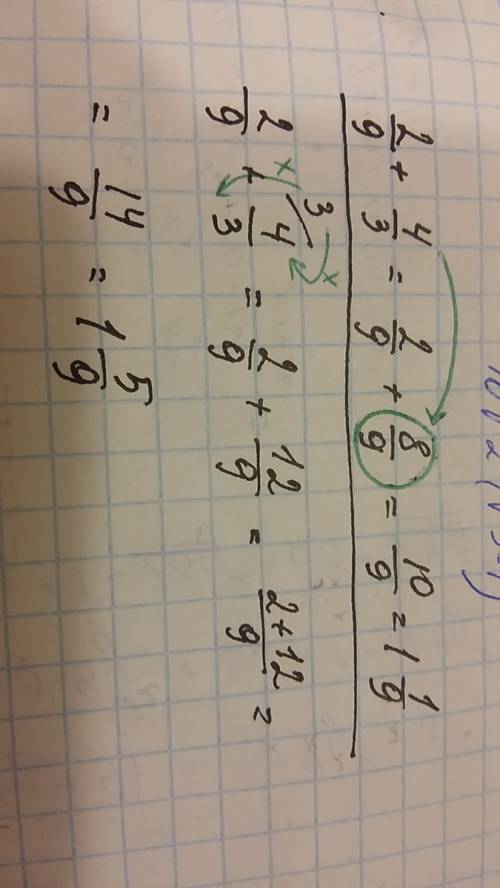 2/9 + 4/3 = 2/9 + 8/9 = 10/9 = 1 1/9
3
× ×
2/9 + 4/3 = 2/9 + 12/9 = 2+12/9 =
= 14/9 = 1 5/9